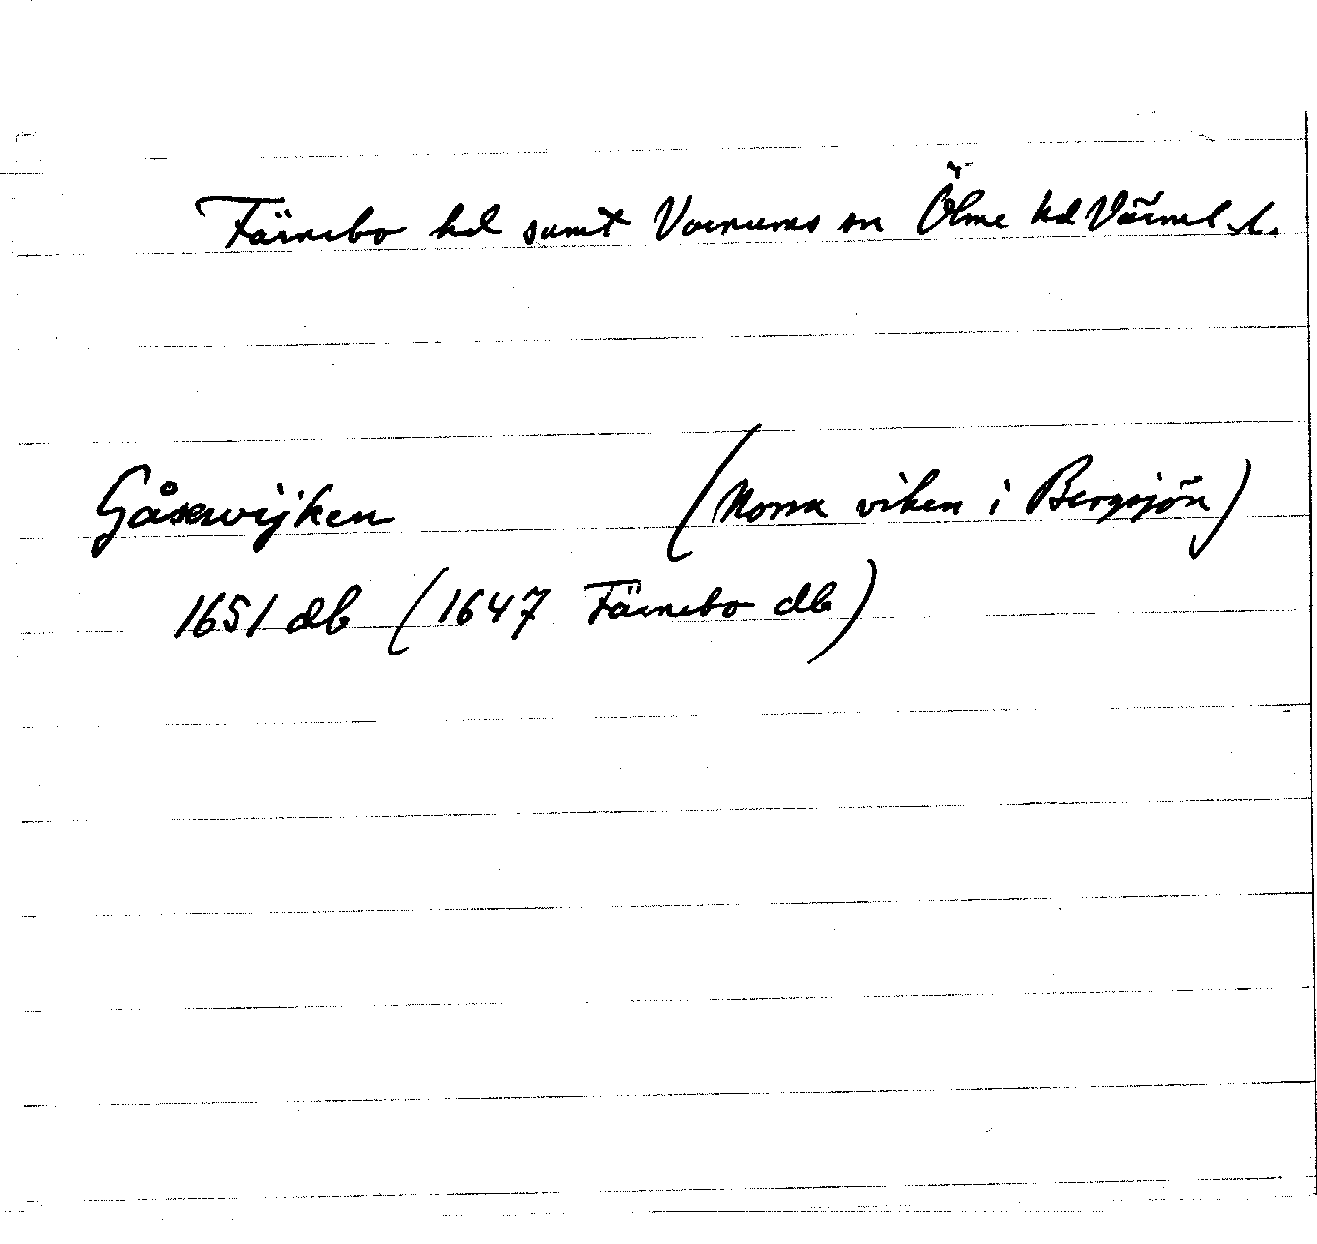 Färnebo hd samt Varnums sn Ölme hd Värml. l.
Gåsewijken (Norra viken i Bergsjön)
1651 db (1647 Färnebo db)